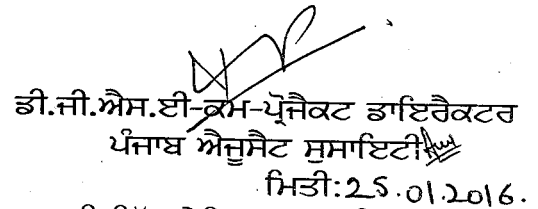 ਡੀ.ਜੀ.ਐਸ.ਈ-ਕਮ-ਪ੍ਰੋਜੈਕਟ ਡਾਇਰੈਕਟਰ
ਪੰਜਾਬ ਐਜੂਸੈਟ ਸੁਸਾਇਟੀ
ਮਿਤੀ:25.01.2016.